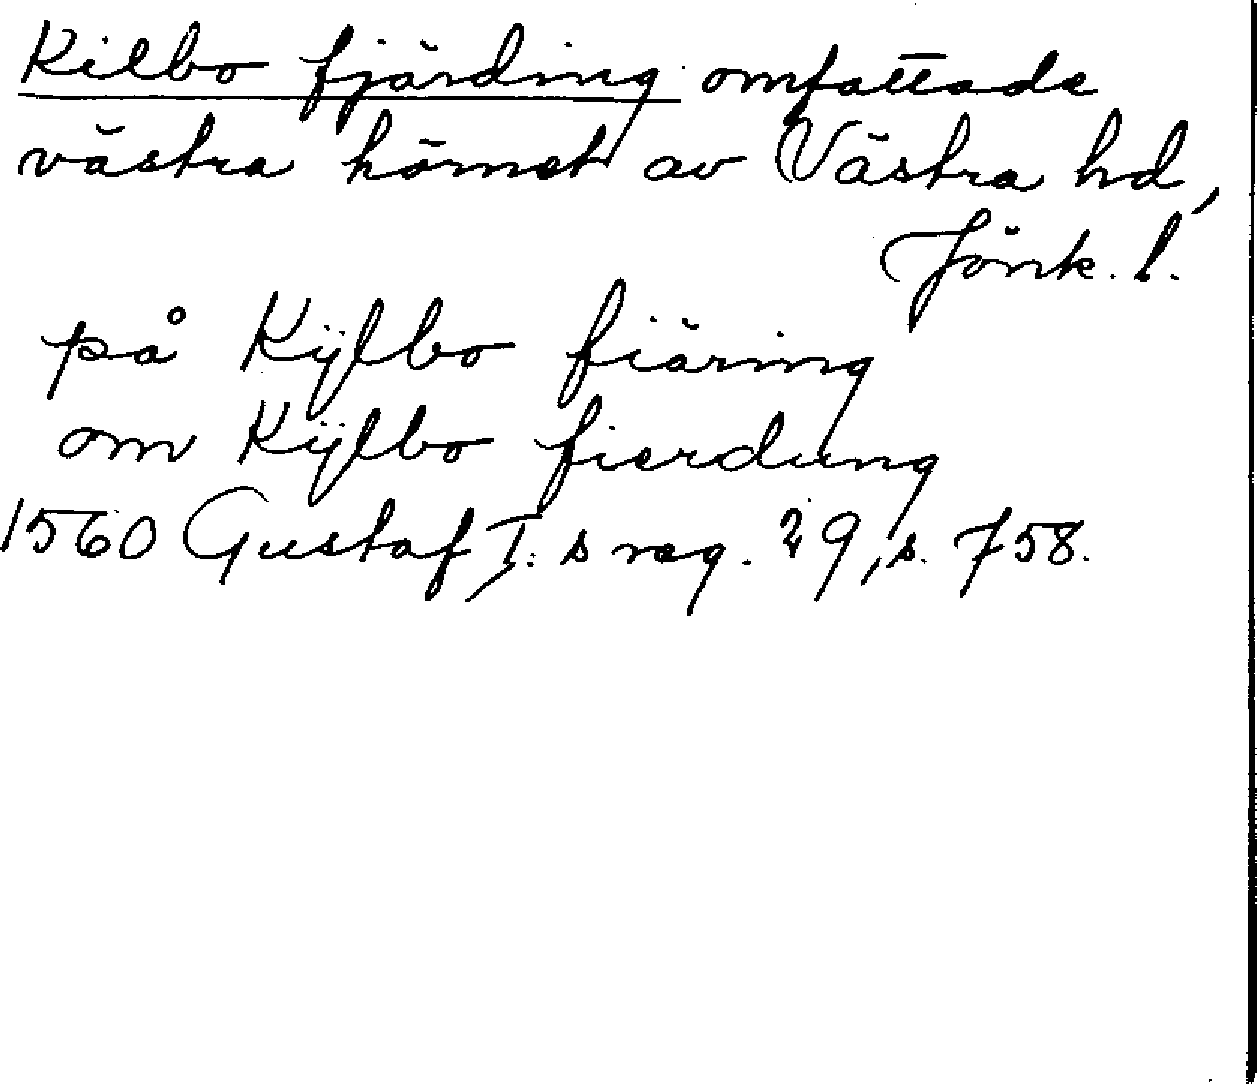 Kilbo fjärding omfattade
västra hörnet av Västra hd,
Jönk. l.
på Kÿlbo fiäring
om Kÿlbo fierdung
1560 Gustaf I:s reg. 29, s. 758.